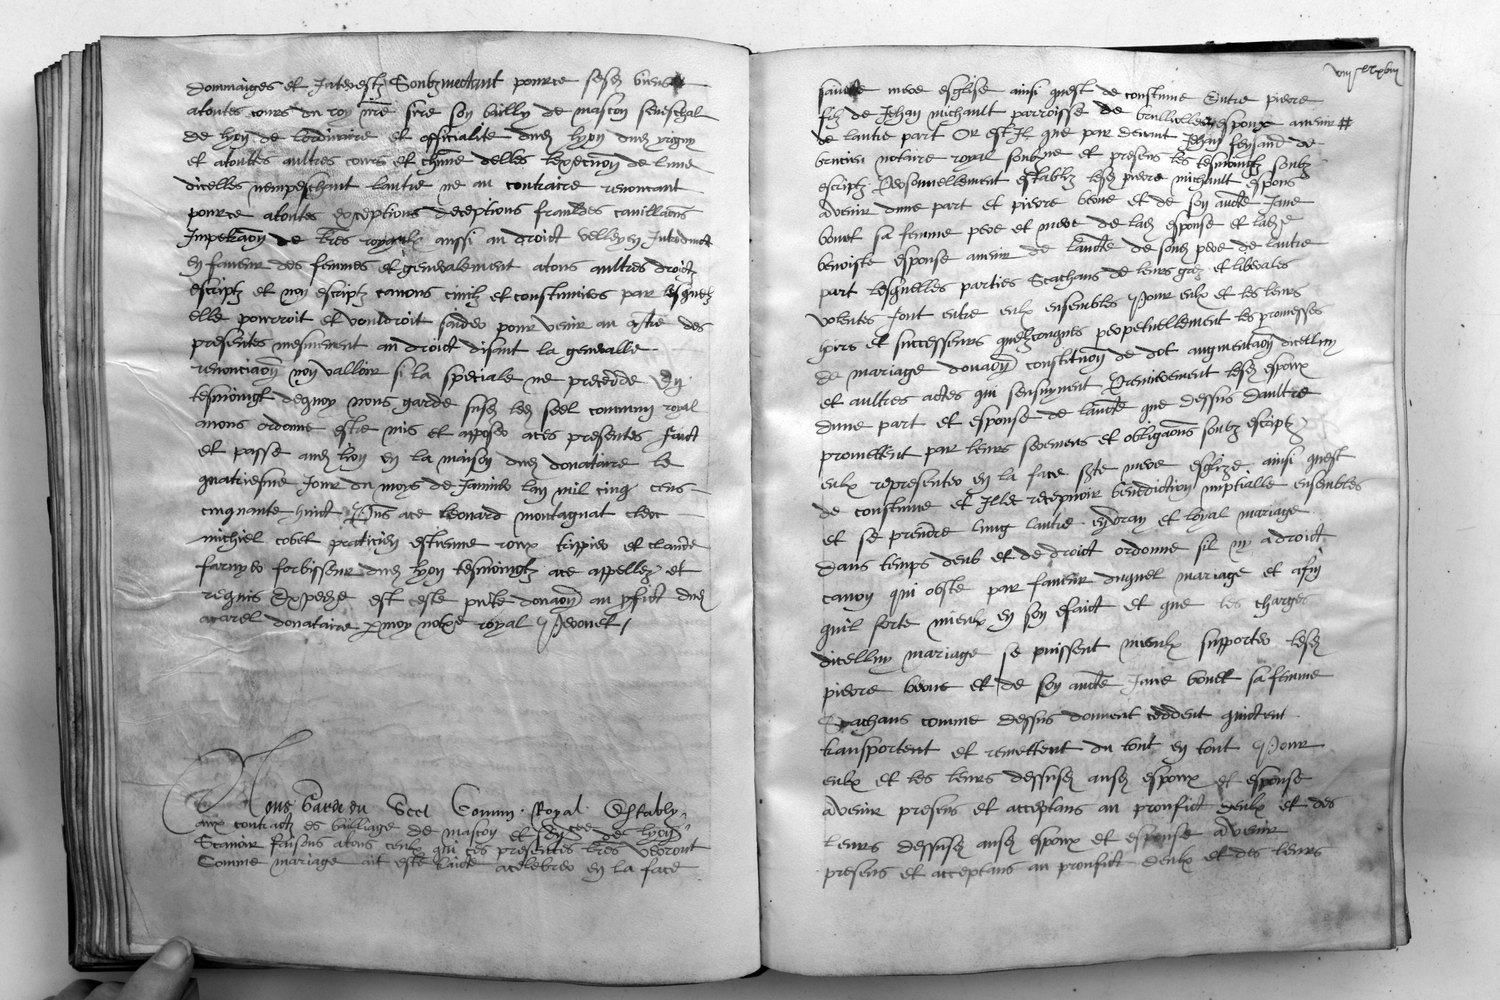 dommaiges et Interestz Soubzmectant pource sesd biens
atoutes cours du roy nre sire son bailly de mascon seneschal
de lyon de lordinaire et officialite dud lyon dud
et atoutes aultres cours et chune delles lexecuon de lune
dicelles nempeschant lautre ne au contraire renoncant
pource atoutes exceptions deceptions fraudes cauillaons
Impetraon de lres royaulx aussi au droict velleyen Introduict
en faueur des femmes et generalement atous aultres droictz
escriptz et non escriptz canons ciuilz et coustumiers par lesquelz
elle pourroit et vouldroit saider pour venir au contre des
presentes mesmement au droict disant la generalle
renonciaon non valloir si la speciale ne precedde En
tesmoingt dequoy nous garde susd led seel commun royal
auons ordonne estre mis et appose aces presentes faict
et passe aud lyon en la maison dud donataire le
quatriesme Jour du moys de Januier lan mil cinq cens
cinquante huict Pns ace leonard montagnat clerc
michiel cobet praticien estienne roux trippier et claude
fornyer forbisseur dud lyon tesmoingtz ace appellez et
requis Expedye est ceste pnte donaon au pffict dud
donataire p moy notre royal
Nous Garde du Seel Commun Royal Estably
aux contractz es bailliage de mascon et sennechaucee de lyon
Scauoir faisons atous ceulx qui ces presentes lres verront
Comme mariage ait este traicte acelebrer en la face
saincte mere esglise ainsi quest de coustume Entre pierre
filz de Jehan michault parroisse de espoux aduenir #
de lautre part Or est Il que par deuant
notaire royal soubzne et presens les tesmoingtz soubz
escriptz Personnellement establyz lesd pierre michault espoux
aduenir dune part et pierre et de son aucte Jane
bonet sa femme pere et mere de lad espouse et lad
benoiste espouse aduenir de laucte de sond pere de lautre
part lesquelles parties Scachans de leurs grez et liberales
volentes font entre eulx ensembles Pour eulx et les leurs
hoirs et successeurs quelzconques perpetuellement les promesses
de mariage donaon constituon de dot augmentaon dicelluy
et aultres actes qui sensuyuent Premierement lesd espoux
dune part et espouse de laucte que dessus daultre
promettent par leurs seremens et obligaons soubz escriptz
eulx representer en la face ste mere esglize ainsi quest
de coustume et Illec recepuoir benediction nuptialle ensembles
et se prendre lung lautre en vray et loyal mariage
dans temps deub et de droict ordonne sil ny a droict
canon qui obste par faueur duquel mariage et afin
quil sorte mieulx en son efaict et que les charges
dicelluy mariage se puissent mieulx supporter lesd
pierre et de son aucte Jane bonet sa femme
Scachans comme dessus donnent ceddent quictent
transportent et remettent du tout en tout Pour
eulx et les leurs dessusd ausd espoux et espouse
aduenir presens et acceptans au prouffict deulx et des
leurs dessusd ausd espoux et espouse aduenir
presens et acceptans au prouffict deulx et des leurs